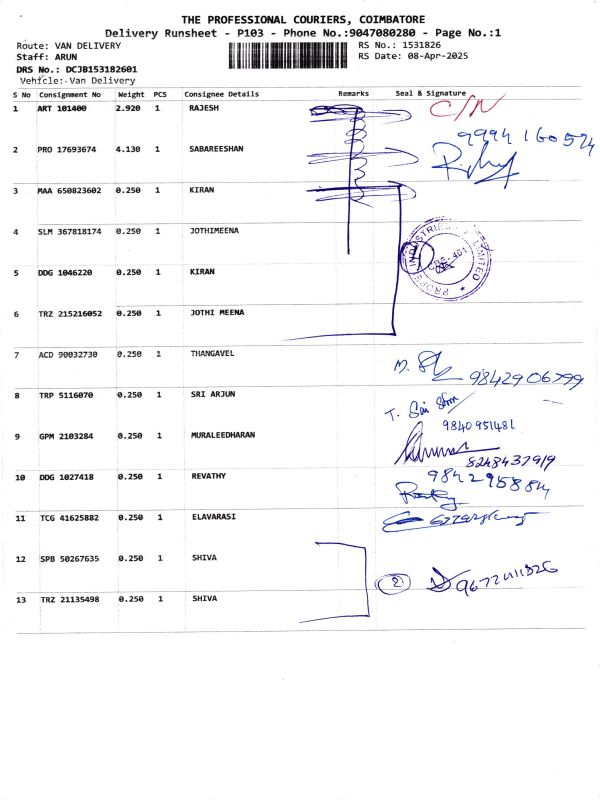 THE PROFESSIONAL COURIERS, COIMBATORE
Delivery Runsheet - P103 - Phone No.:9047080280 - Page No.:1
Route: VAN DELIVERY RS No.: 1531826
Staff: ARUN RS Date: 08-Apr-2025
DRS No.: DCJB153182601
Vehicle: Van Delivery
S No Consignment No Weight PCS Consignee Details Remarks Seal & Signature
1 ART 101400 2.920 1 RAJESH C/N
9994 160574
2 PRO 17693674 4.130 1 SABAREESHAN
3 MAA 650823602 0.250 1 KIRAN
4 SLM 367818174 0.250 1 JOTHIMEENA
INDUSTRIES LIMITED
CBE-401
5 DDG 1046220 0.250 1 KIRAN
6 TRZ 215216052 0.250 1 JOTHI MEENA
7 ACD 90032730 0.250 1 THANGAVEL
M. 9842906799
8 TRP 5116070 0.250 1 SRI ARJUN
T. Sai
9840951481
9 GPM 2103284 0.250 1 MURALEEDHARAN
8248437919
10 DDG 1027418 0.250 1 REVATHY
11 TCG 41625882 0.250 1 ELAVARASI
12 SPB 50267635 0.250 1 SHIVA
2
13 TRZ 21135498 0.250 1 SHIVA